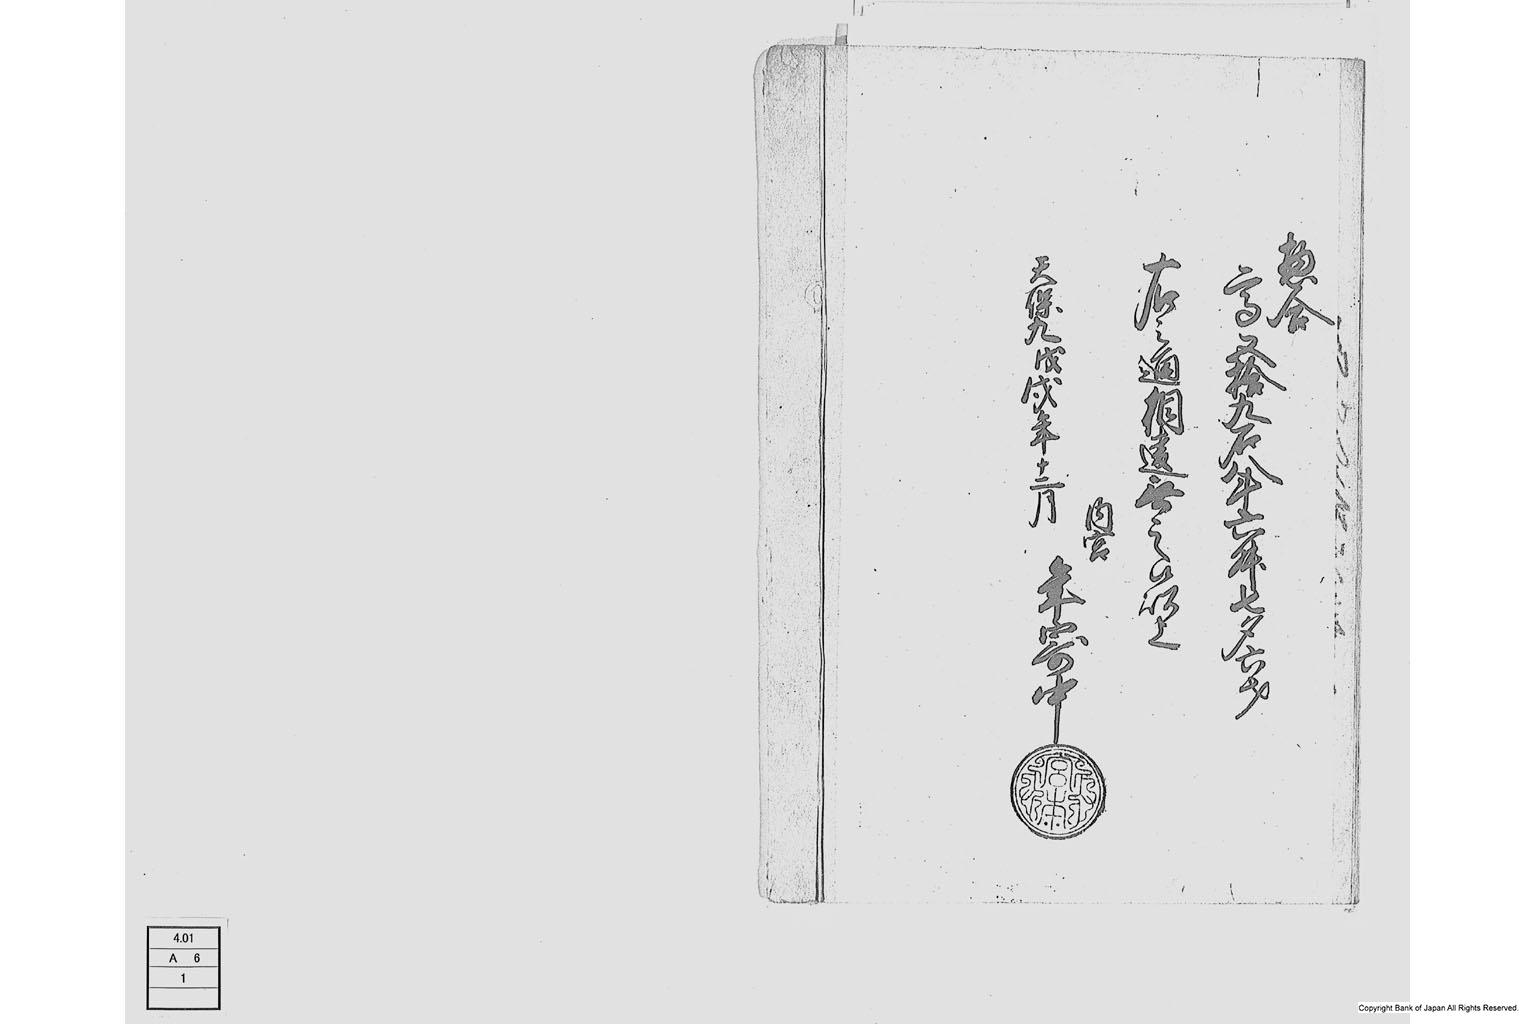 惣合
高 又拾九石八斗六升七夕六才
右之通相違無之候以上
内宮
天保九戊戌年十二月
年寄中
4.01
A 6
1
Copyright Bank of Japan All Rights Reserved.